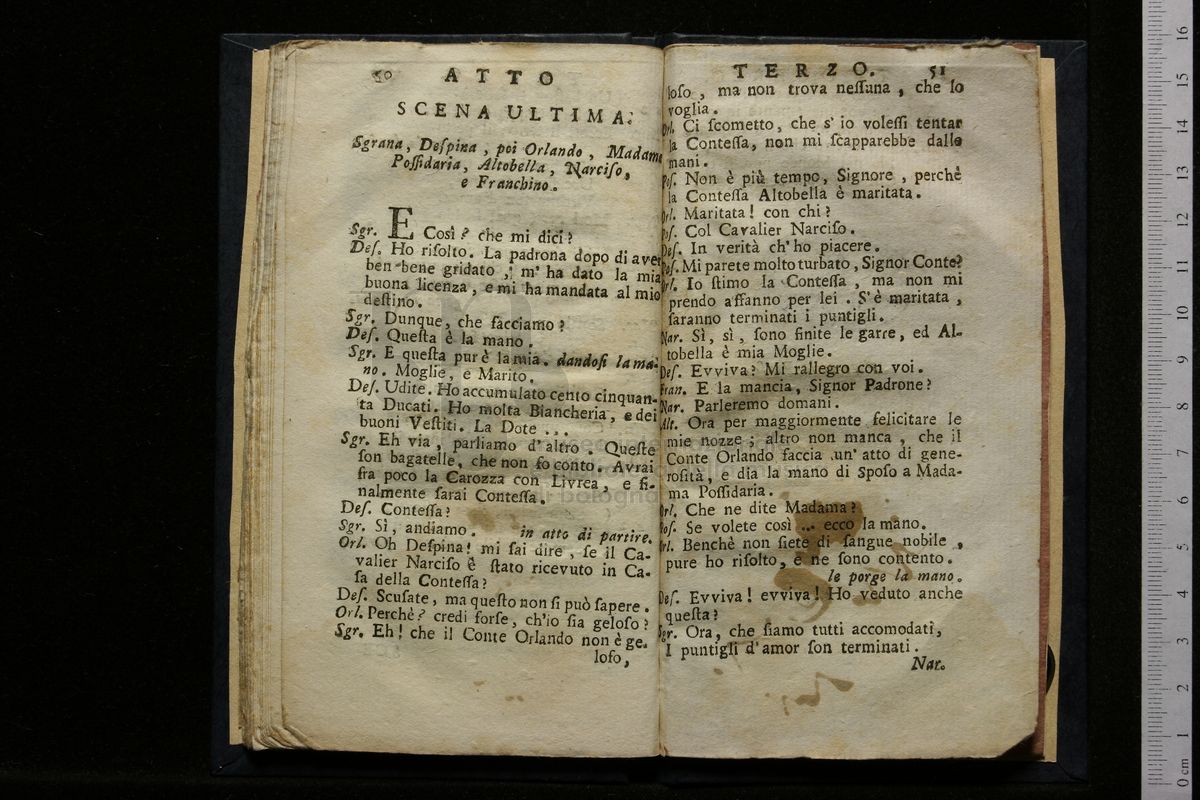 50 ATTO
SCENA ULTIMA.
Sgrana, Deſpina, poi Orlando, Madama
Poſſidaria, Altobella, Narciſo,
e Franchino.
Sgr. E Così? che mi dici?
Deſ. Ho riſolto. La padrona dopo di aver
ben bene gridato, m' ha dato la mia
buona licenza, e mi ha mandata al mio
deſtino.
Sgr. Dunque, che facciamo?
Deſ. Queſta è la mano.
Sgr. E queſta pur è la mia. dandoſi la ma-
no. Moglie, e Marito.
Deſ. Udite. Ho accumulato cento cinquan-
ta Ducati. Ho molta Biancheria, e dei
buoni Veſtiti. La Dote ...
Sgr. Eh via, parliamo d' altro. Queſte
ſon bagatelle, che non fo conto. Avrai
fra poco la Carozza con Livrea, e fi-
nalmente ſarai Conteſſa.
Deſ. Conteſſa?
Sgr. Sì, andiamo. in atto di partire.
Orl. Oh Deſpina! mi ſai dire, ſe il Ca-
valier Narciſo è ſtato ricevuto in Ca-
ſa della Conteſſa?
Deſ. Scuſate, ma queſto non ſi può ſapere.
Orl. Perchè? credi forſe, ch'io ſia geloſo?
Sgr. Eh! che il Conte Orlando non è ge-
loſo,
TERZO. 51
loſo, ma non trova neſſuna, che lo
voglia.
Orl. Ci ſcometto, che s' io voleſſi tentar
la Conteſſa, non mi ſcapparebbe dalle
mani.
Poſ. Non è più tempo, Signore, perchè
la Conteſſa Altobella è maritata.
Orl. Maritata! con chi?
Poſ. Col Cavalier Narciſo.
Deſ. In verità ch' ho piacere.
Poſ. Mi parete molto turbato, Signor Conte?
Orl. Io ſtimo la Conteſſa, ma non mi
prendo affanno per lei. S' è maritata,
ſaranno terminati i puntigli.
Nar. Sì, sì, ſono finite le garre, ed Al-
tobella è mia Moglie.
Deſ. Evviva? Mi rallegro con voi.
Fran. E la mancia, Signor Padrone?
Nar. Parleremo domani.
Alt. Ora per maggiormente felicitare le
mie nozze; altro non manca, che il
Conte Orlando faccia un' atto di gene-
roſità, e dia la mano di Spoſo a Mada-
ma Poſſidaria.
Orl. Che ne dite Madama?
Poſ. Se volete così ... ecco la mano.
Orl. Benchè non ſiete di ſangue nobile,
pure ho riſolto, e ne ſono contento.
le porge la mano.
Deſ. Evviva! evviva! Ho veduto anche
queſta?
Sgr. Ora, che ſiamo tutti accomodati,
I puntigli d' amor ſon terminati.
Nar.
0 cm 1 2 3 4 5 6 7 8 9 10 11 12 13 14 15 16